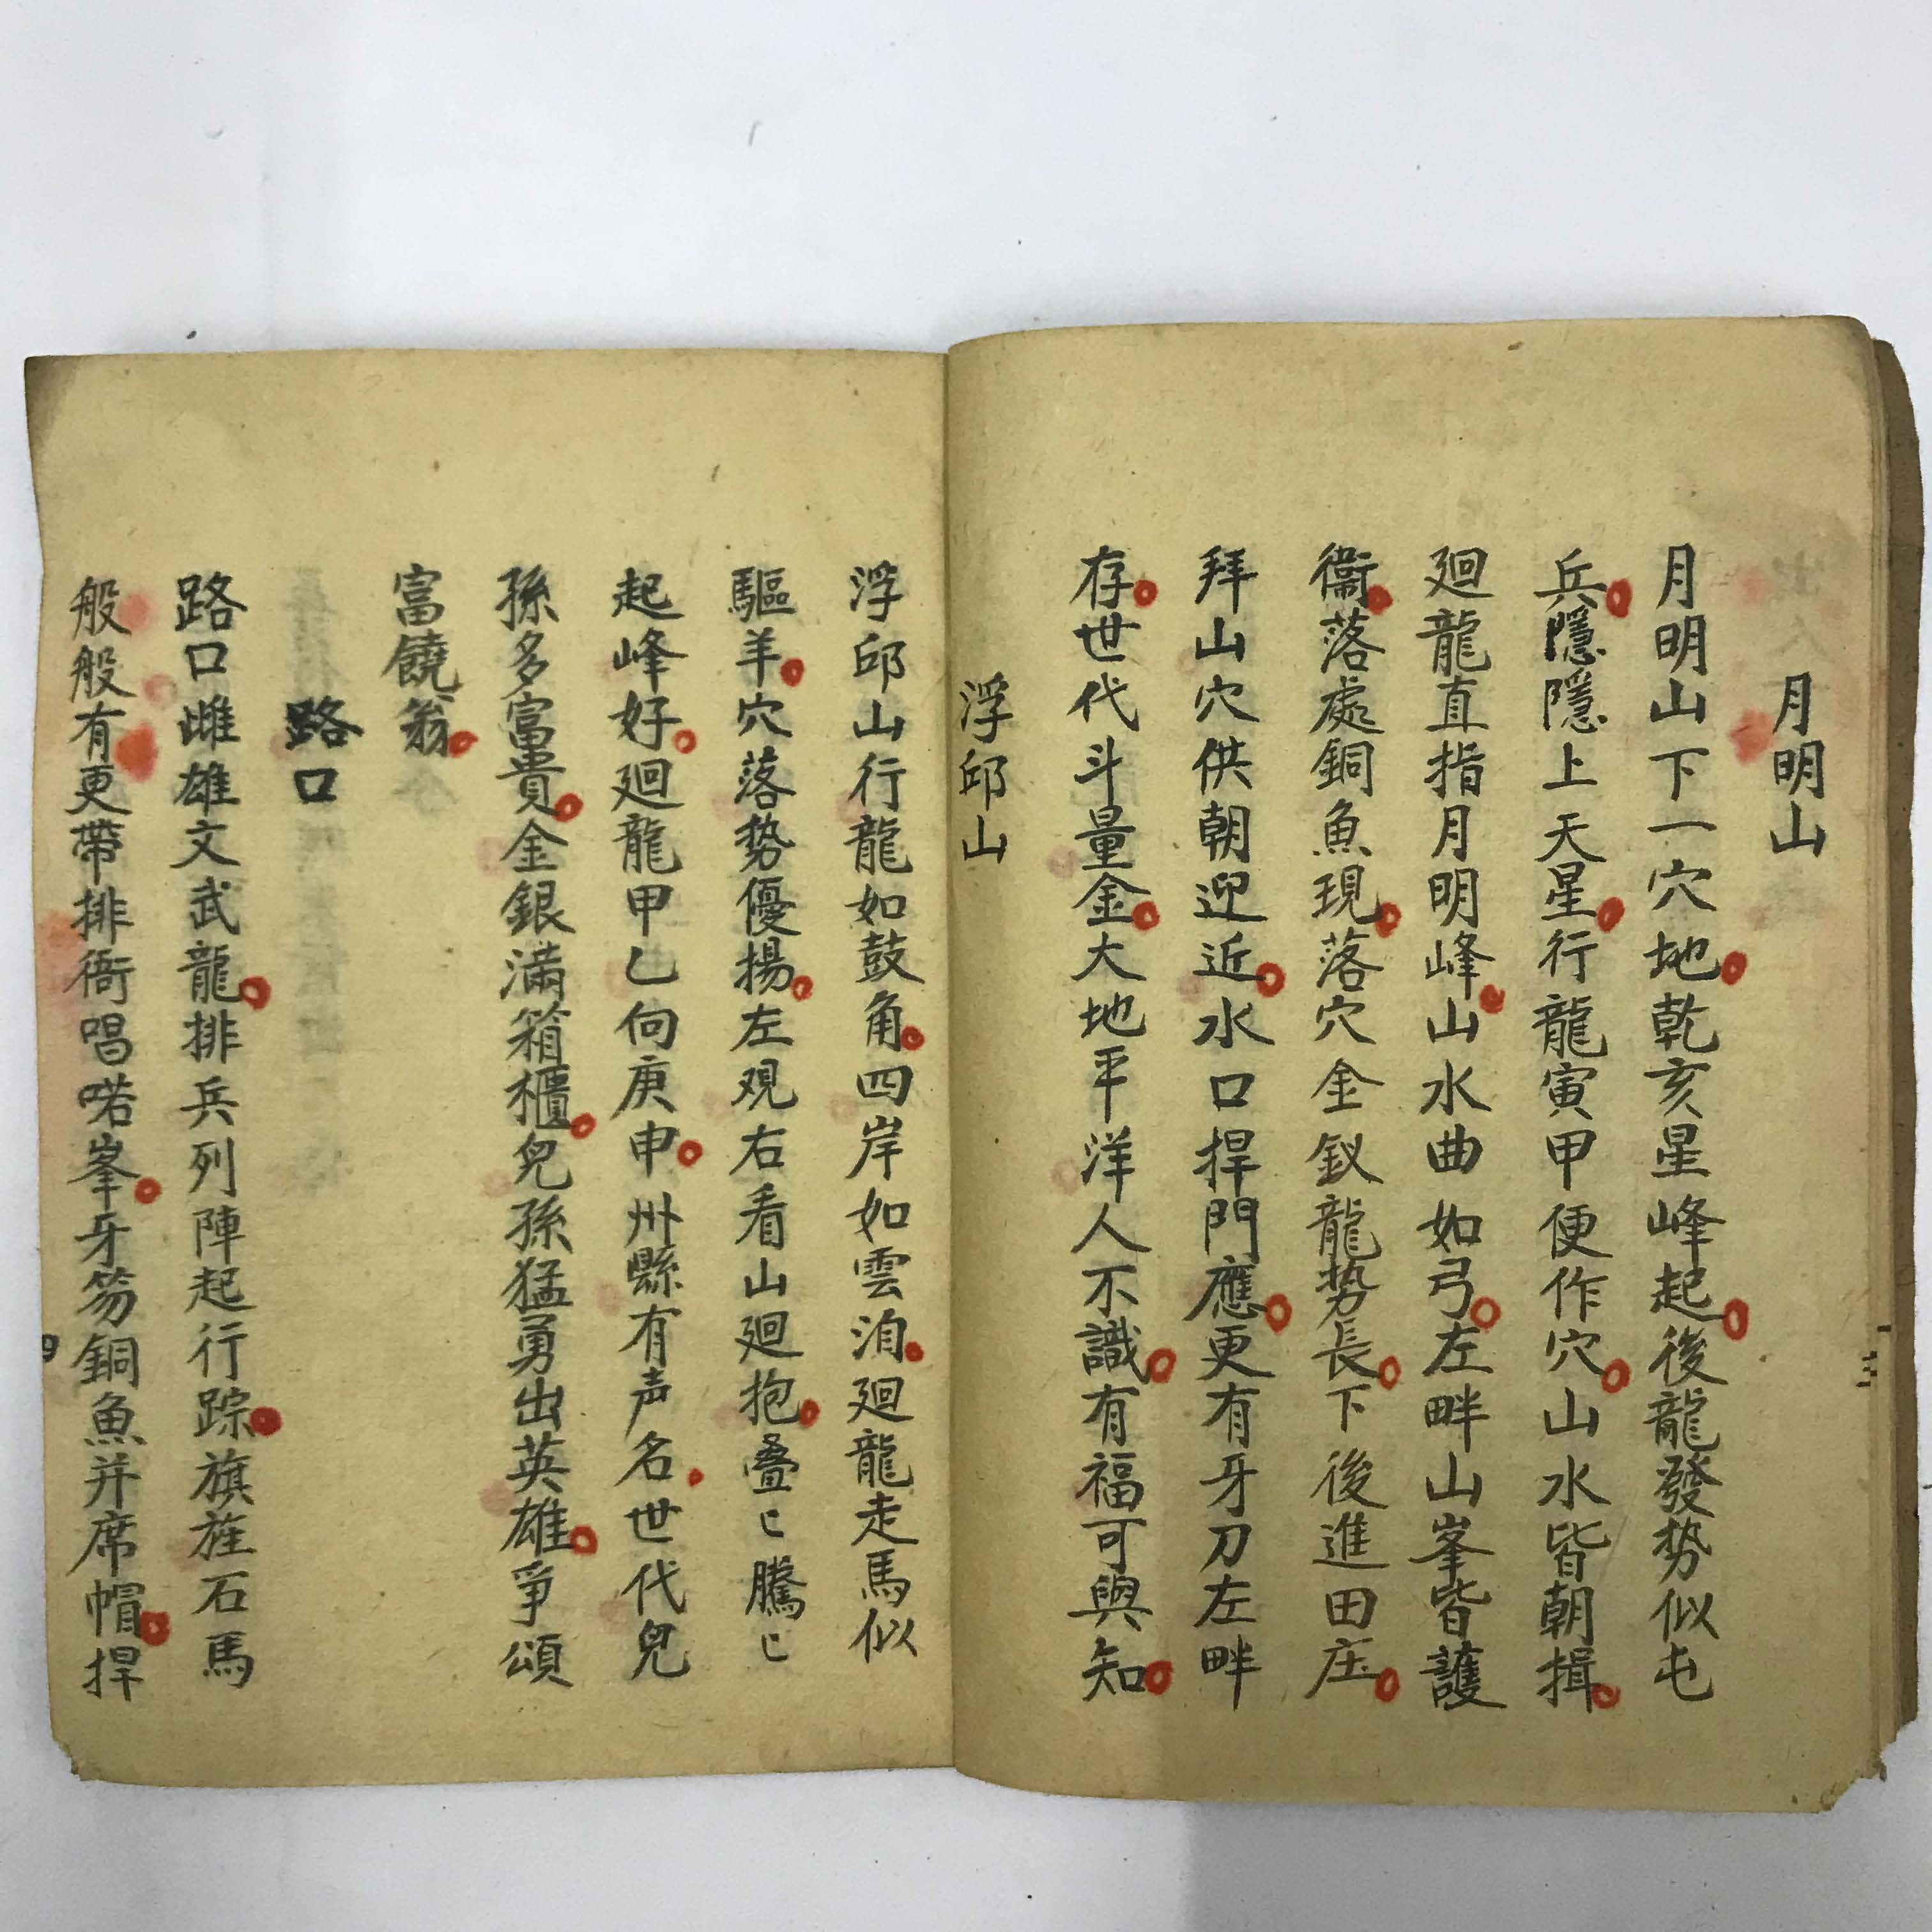 月明山
月明山下一穴地乾亥星峰起後龍發势似屯
兵隱隱上天星行龍寅甲便作穴山水皆朝揖
廻龍直指月明峰山水曲如弓左畔山峯皆護
衞落處銅魚現落穴金釵龍势長下後進田庄
拜山穴供朝迎近水口捍門應更有牙刀左畔
存世代斗量金大地平洋人不識有福可與知
浮邱山
浮邱山行龍如鼓角四岸如雲洶廻龍走馬似
驅羊穴落勢優揚左观右看山廻抱叠〻騰〻
起峰好廻龍甲乙向庚申州縣有声名世代兒
孫多富貴金銀滿箱櫃兒孫猛勇出英雄爭頌
富饒翁
路口
路口雌雄文武龍排兵列陣起行踪旗旌石馬
般般有更帶排衙唱喏峯牙笏銅魚并席帽捍